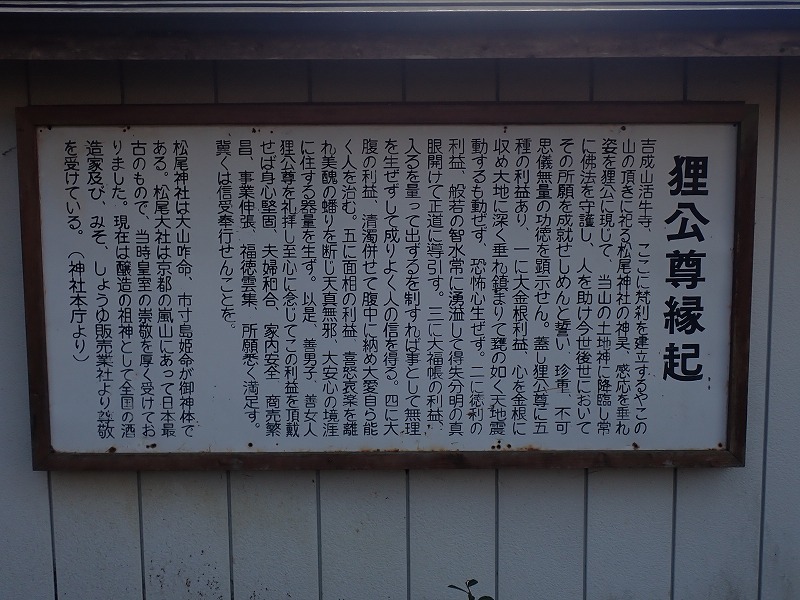 狸公尊縁起
吉成山活牛寺、ここに梵刹を建立するやこの
山の頂きに祀る松尾神社の神吴、感応を垂れ
姿を狸公に現じて、当山の土地神に降臨し常
に佛法を守護し、人を助け今世後世において
その所願を成就せしめんと誓い、珍重、不可
思儀無量の功徳を顕示せん。蓋し狸公尊に五
種の利益あり、一に大金根利益、心を金根に
収め大地に深く垂れ鎮まりて甕の如く天地震
動するも動ぜず、恐怖心生ぜず。二に徳利の
利益、般若の智水常に湧溢して得失分明の真
眼開けて正道に導引す。三に大福帳の利益、
入るを量って出ずるを制すれば事として無理
を生ぜずして成りよく人の信を得る。四に大
腹の利益、清濁併せて腹中に納め大愛自ら能
く人を治む。五に面相の利益、喜怒哀楽を離
れ美醜の蟠りを断じ天真無邪、大安心の境涯
に住する器量を生ず。以是、善男子、善女人
狸公尊を礼拝し至心に念じてこの利益を頂戴
せば身心堅固、夫婦和合、家内安全、商売繁
昌、事業伸張、福徳雲集、所願悉く満足す。
冀くは信受奉行せんことを。
松尾神社は大山咋命、市寸島姫命が御神体で
ある。松尾大社は京都の嵐山にあって日本最
古のもので、当時皇室の崇敬を厚く受けてお
りました。現在は醸造の祖神として全国の酒
造家及び、みそ、しょうゆ販売業社より尊敬
を受けている。（神社本庁より）